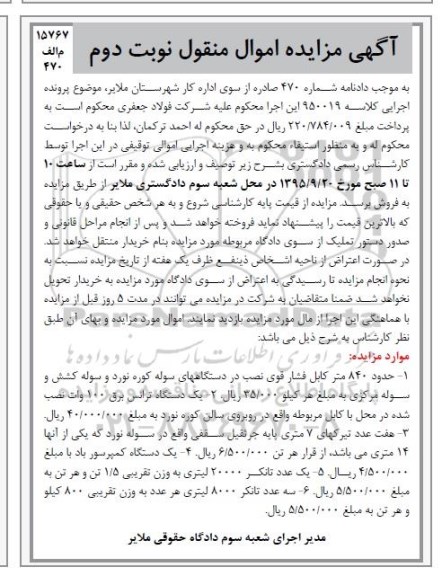 ۱۵۷۶۷
م‌الف
۴۷۰
آگهی مزایده اموال منقول نوبت دوم
به موجب دادنامه شماره ۴۷۰ صادره از سوی اداره کار شهرستان ملایر، موضوع پرونده
اجرایی کلاسه ۹۵۰۰۱۹ این اجرا محکوم علیه شرکت فولاد جعفری محکوم است به
پرداخت مبلغ ۲۲۰/۷۸۴/۰۰۹ ریال در حق محکوم له احمد ترکمان، لذا بنا به درخواست
محکوم له و به منظور استیفاء محکوم به و هزینه اجرایی اموالی توقیفی در این اجرا توسط
کارشناس رسمی دادگستری بشرح زیر توصیف و ارزیابی شده و مقرر است از ساعت ۱۰
تا ۱۱ صبح مورخ ۱۳۹۵/۹/۲۰ در محل شعبه سوم دادگستری ملایر از طریق مزایده
به فروش برسد. مزایده از قیمت پایه کارشناسی شروع و به هر شخص حقیقی و یا حقوقی
که بالاترین قیمت را پیشنهاد نماید فروخته خواهد شد و پس از انجام مراحل قانونی و
صدور دستور تملیک از سوی دادگاه مربوطه مورد مزایده بنام خریدار منتقل خواهد شد.
در صورت اعتراض از ناحیه اشخاص ذینفع ظرف یک هفته از تاریخ مزایده نسبت به
نحوه انجام مزایده تا رسیدگی به اعتراض از سوی دادگاه مورد مزایده به خریدار تحویل
نخواهد شد ضمنا متقاضیان به شرکت در مزایده می توانند در مدت ۵ روز قبل از مزایده
با هماهنگی این اجرا از مال مورد مزایده بازدید نمایند. اموال مورد مزایده و بهای آن طبق
نظر کارشناس به شرح ذیل می باشد:
موارد مزایده:
۱- حدود ۸۴۰ متر کابل فشار قوی نصب در دستگاههای سوله کوره نورد و سوله کشش و
سوله مرکزی به مبلغ هر کیلو ۳۵/۰۰۰ ریال. ۲- یک دستگاه ترانس برق ۱۰۰ وات نصب
شده در محل با کابل مربوطه واقع در روبروی سالن کوره نورد به مبلغ ۴۰/۰۰۰/۰۰۰ ریال.
۳- هفت عدد تیرکهای ۷ متری پایه جرثقیل سقفی واقع در سوله نورد که یکی از آنها
۱۴ متری می باشد، از قرار هر تن ۶/۵۰۰/۰۰۰ ریال. ۴- یک دستگاه کمپرسور باد با مبلغ
۴/۵۰۰/۰۰۰ ریال. ۵- یک عدد تانکر ۲۰۰۰۰ لیتری به وزن تقریبی ۱/۵ تن و هر تن به
مبلغ ۵/۵۰۰/۰۰۰ ریال. ۶- سه عدد تانکر ۸۰۰۰ لیتری هر عدد به وزن تقریبی ۸۰۰ کیلو
و هر تن به مبلغ ۵/۵۰۰/۰۰۰ ریال.
مدیر اجرای شعبه سوم دادگاه حقوقی ملایر